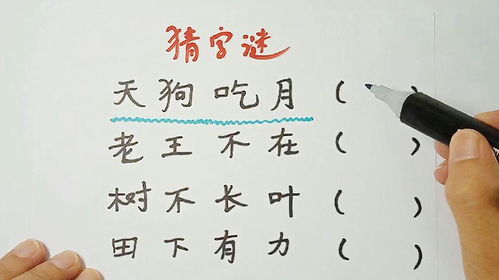 猜字谜
天狗吃月(    )
老王不在(    )
树不长叶(    )
田下有力(    )